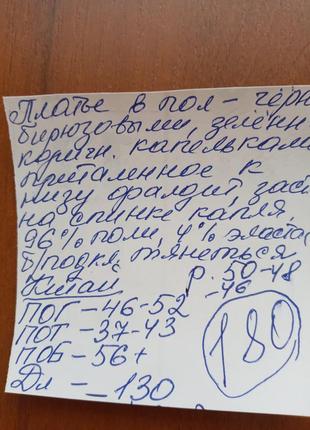 Платье в пол - чёрн
бирюзовыми, зелённ
коричн. капельками
приталенное к
низу фалдит, заст
на спинке капля,
96% поли, 4% эласта
б/подкл, тянеться
Китай р. 50-48
-46
ПОГ - 46-52
ПОТ - 37-43
ПОБ - 56+
Дл - 130
180